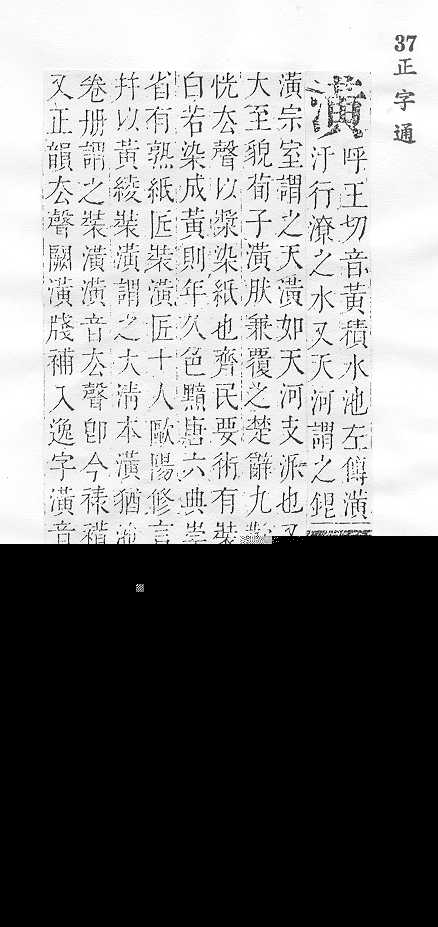 37 正字通
潢 呼王切音黃積水池左傳潢
汙行潦之水又天河謂之
潢宗室謂之天潢如天河支派也又
大至貌荀子潢肰兼覆之楚辭九歎
恍厺聲以漿染紙也齊民要術有裝
白若染成黃則年久色黯唐六典崇
省有熟紙匠裝潢匠十人歐陽修言
幷以黃綾裝潢謂之大清本潢猶
卷册謂之裝潢潢音厺聲卽今裱褙
又正韻厺聲闕潢牋補入逸字潢音